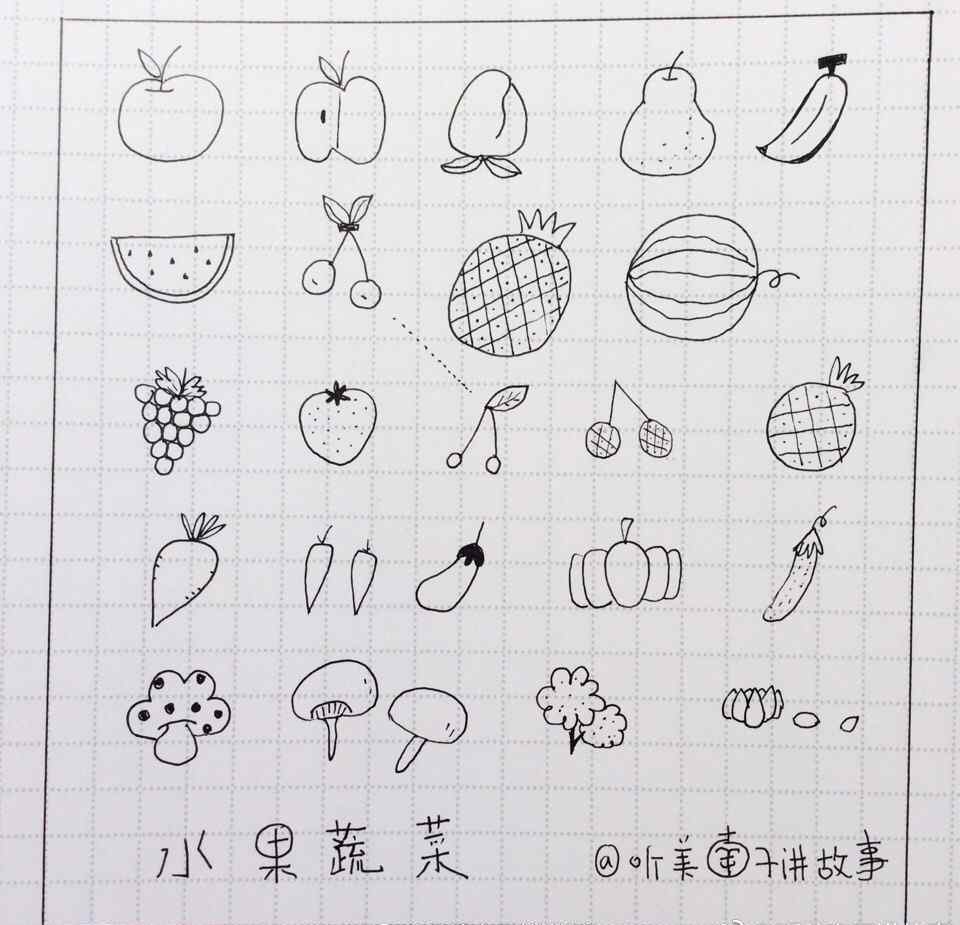 水果蔬菜
@听美南子讲故事